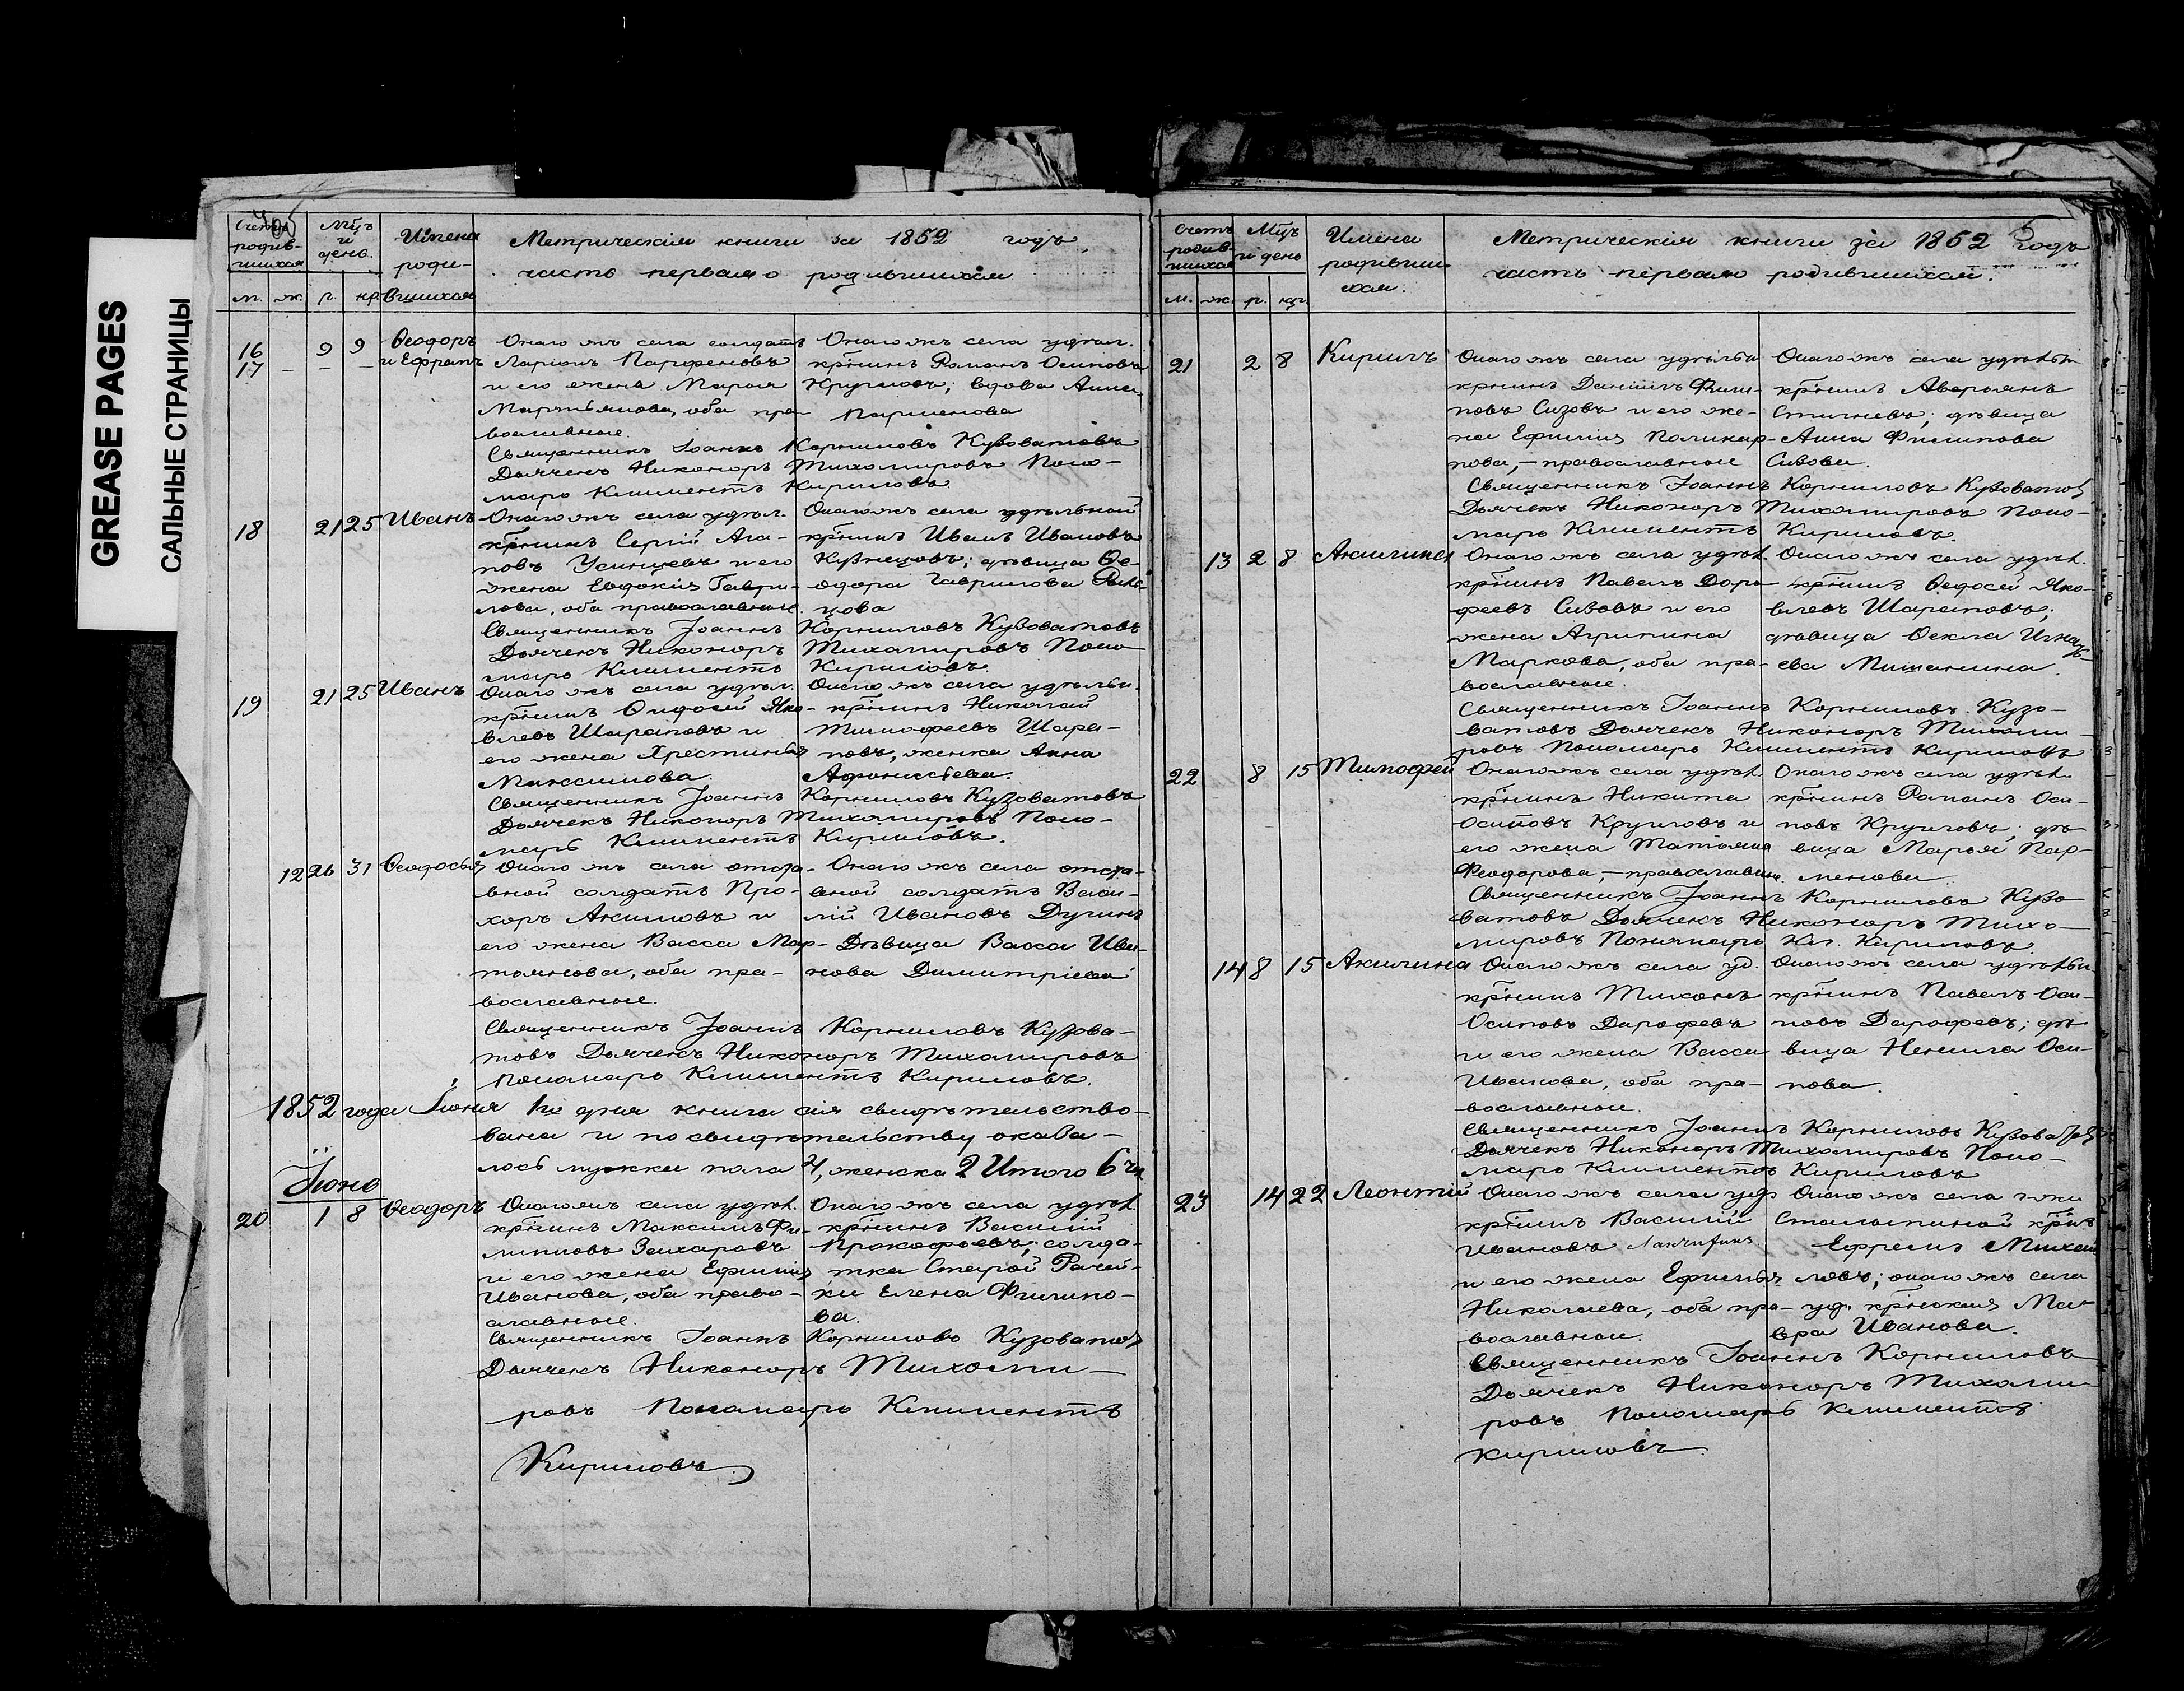 GREASE PAGES
САЛЬНЫЕ СТРАНИЦЫ
Счетъ родив-шихся
Мѣцъ и день.
Имена роди-вшихся
Метрическія книги за 1852 годъ,
часть первая о родившихся
м. ж. р. кр.
16 9 9 Ѳеодоръ
17 – – – и Ефрамъ
Онаго жъ села солдатъ
Ларіонъ Парфеновъ
и его жена Марья
Мартьянова, оба пра-
вославные.
Онаго жъ села удѣл.
крт̃нинъ Романъ Осиповъ
Кругловъ; вдова Анна
Парменова
Священникъ Іоаннъ Корниловъ Кузоватовъ
Дьячекъ Никоноръ Тихомировъ Поно-
марь Климентъ Кириловъ.
18 21 25 Иванъ
Онаго жъ села удѣл.
крт̃нинъ Сергій Ага-
повъ Усинцевъ и его
жена Евдокія Гаври-
лова, оба православные.
Онаго жъ села удѣльной
крт̃нинъ Иванъ Ивановъ
Кузнецовъ; дѣвица Ѳе-
одора Гаврилова
Священникъ Іоаннъ Корниловъ Кузоватовъ
Дьячекъ Никоноръ Тихомировъ Поно-
марь Климентъ Кириловъ.
19 21 25 Иванъ
Онаго жъ села удѣл.
крт̃нинъ Ѳидосей Яко-
влевъ Шараповъ и
его жена Христинья
Максимова.
Онаго жъ села удѣльн.
крт̃нинъ Николай
Тимофеевъ Шара-
повъ, женка Анна
Афонасьева.
Священникъ Іоаннъ Корниловъ Кузоватовъ
Дьячекъ Никоноръ Тихомировъ Поно-
марь Климентъ Кириловъ.
12 26 31 Ѳеодосья
Онаго жъ села отста-
вной солдатъ Про-
хоръ Акимовъ и
его жена Васса Мар-
тьянова, оба пра-
вославные.
Онаго жъ села отста-
вной солдатъ Васи-
лій Ивановъ Дугинъ
Дѣвица Васса Ива-
нова Димитріева
Священникъ Іоаннъ Корниловъ Кузова-
товъ Дьячекъ Никоноръ Тихомировъ
Пономарь Климентъ Кириловъ.
1852 года Іюня 1го дня книга сія свидѣтельство-
вана и по свидѣтельству оказа-
лось мужска пола 4, женска 2 Итого 6 ч.
Іюнь
20 1 8 Ѳеодоръ
Онаго жъ села удѣл.
крт̃нинъ Максимъ Фи-
липповъ Захаровъ
и его жена Ефимія
Иванова, оба право-
славные.
Онаго жъ села удѣл.
крт̃нинъ Василій
Прокофьевъ; солда-
тка Старой Рачей-
ки Елена Филипо-
ва.
Священникъ Іоаннъ Корниловъ Кузоватов
Дьячекъ Никоноръ Тихоми-
ровъ Пономарь Климентъ
Кириловъ.
Счетъ родив-шихся
Мѣцъ и день
Имена родивши-хся.
Метрическія книги за 1852 Годъ
часть первая о родившихся.
м. ж. р. кр.
21 2 8 Кирилъ
Онаго жъ села удѣльн
крт̃нинъ Даніилъ Фили-
повъ Сизовъ и его же-
на Ефимія Поликар-
пова, – православные
Онаго жъ села удѣльн
крт̃нинъ Аверьянъ
дѣвица
Анна Филипова
Сизова.
Священникъ Іоаннъ Корниловъ Кузоватов
Дьячекъ Никоноръ Тихомировъ Поно-
марь Климентъ Кириловъ.
13 2 8 Акилина
Онаго жъ села удѣл.
крт̃нинъ Павелъ Доро-
феевъ Сизовъ и его
жена Агрипина
Маркова, оба пра-
вославные.
Онаго жъ села удѣл.
крт̃нинъ Ѳедосей Яко-
влевъ Шараповъ;
дѣвица Ѳекла Игнать-
ева Мишанина.
Священникъ Іоаннъ Корниловъ Кузо-
ватовъ Дьячекъ Никоноръ Тихоми-
ровъ Пономарь Климентъ Кириловъ
22 8 15 Тимофей
Онаго жъ села удѣл.
крт̃нинъ Никита
Осиповъ Кругловъ и
его жена Татьяна
Феодорова, – православн.
Онаго жъ села удѣл
крт̃нинъ Романъ Оси-
повъ Кругловъ; дѣ-
вица Марья Пар-
менова
Священникъ Іоаннъ Корниловъ Кузо-
ватовъ Дьячекъ Никоноръ Тихо-
мировъ Пономарь Кл. Кириловъ
14 8 15 Акилина
Онаго жъ села уд.
крт̃нинъ Тихонъ
Осиповъ Дарофевъ
и его жена Васса
Иванова, оба пра-
вославные.
Онаго жъ села удѣльн.
крт̃нинъ Павелъ Оси-
повъ Дарофевъ; дѣ-
вица Ненила Оси-
пова.
Священникъ Іоаннъ Корниловъ Кузоватов
Дьячекъ Никоноръ Тихомировъ Поно-
марь Климентъ Кириловъ
23 14 22 Леонтій
Онаго жъ села уд
крт̃нинъ Василій
Ивановъ
и его жена Ефимья
Николаева, оба пра-
вославные.
Онаго жъ села г-жи
Столыпиной крт̃нъ
Ефремъ Михай-
ловъ; онаго жъ села
уд. крт̃нская Ма-
вра Иванова.
Священникъ Іоаннъ Корниловъ
Дьячекъ Никоноръ Тихоми-
ровъ Пономарь Климентъ
Кириловъ.